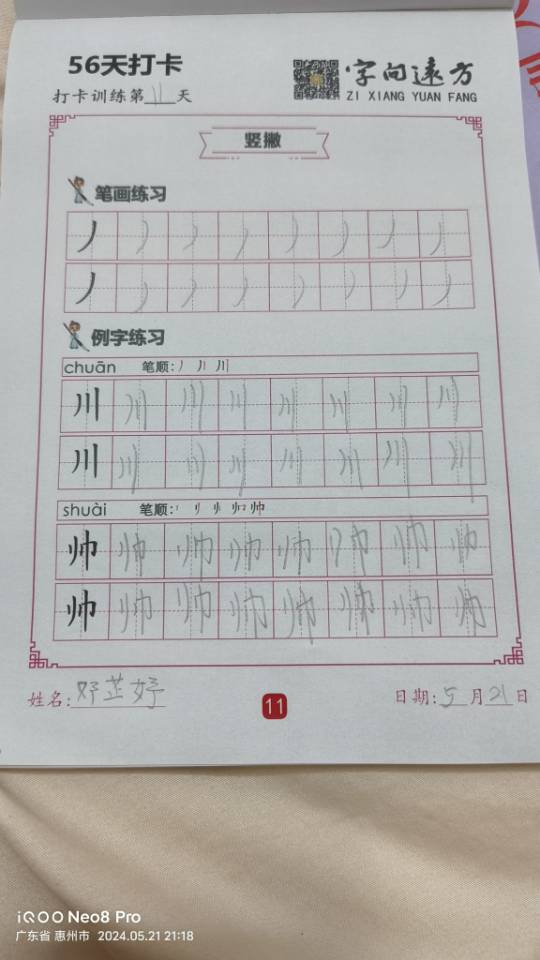 56天打卡
字向远方
打卡训练第11天
ZI XIANG YUAN FANG
竖撇
笔画练习
丿丿丿丿丿丿丿丿
丿丿丿丿丿丿丿丿
例字练习
chuān 笔顺: 丿 丿丨 川
川川川川川川川川
川川川川川川川川
shuài 笔顺:
帅帅帅帅帅帅帅帅
帅帅帅帅帅帅帅帅
姓名: 芷妤
11
日期: 5月21日
iQOO Neo8 Pro
广东省 惠州市 2024.05.21 21:18